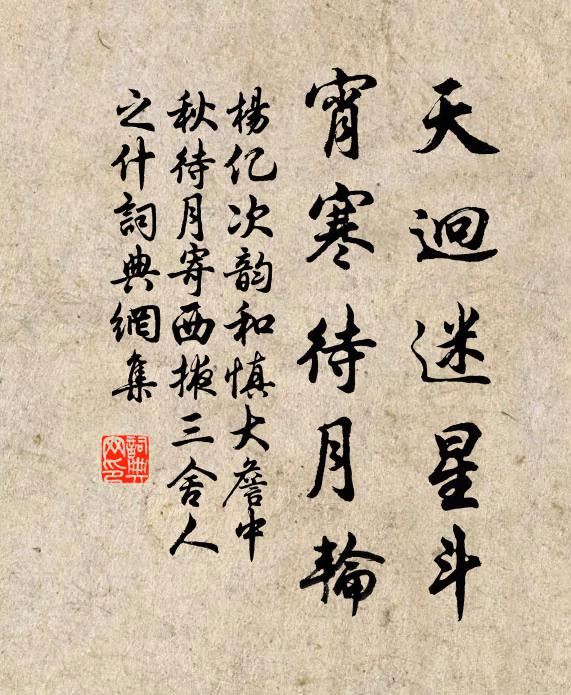 天迥迷星斗
宵寒待月輪
楊亿次韵和慎大詹中
秋待月寄西掖三舍人
之什詞典網集
詞典
网印